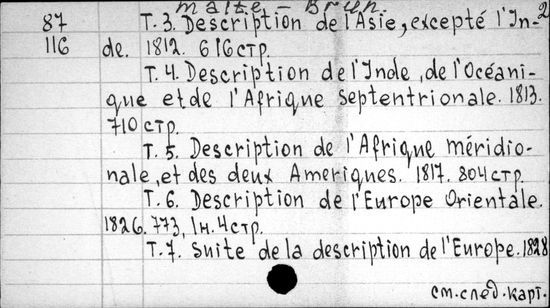 Malte-Brun. 2
87 Т. 3. Description de l'Asie, excepté l'In-
116 de. 1812. 616 стр.
Т. 4. Description de l'Inde, de l'Océani-
que et de l'Afrique septentrionale. 1813.
710 стр.
Т. 5. Description de l'Afrique méridio-
nale, et des deux Ameriques. 1817. 804 стр.
Т. 6. Description de l'Europe Orientale.
1826. 773, 1н. 4 стр.
Т. 7. Suite de la description de l'Europe. 1828
см. след. карт.